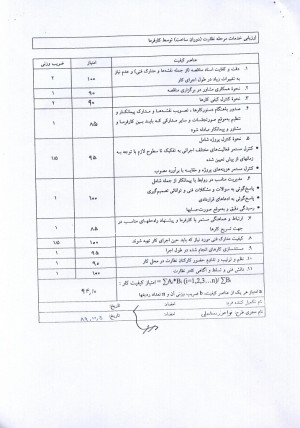 ارزیابی خدمات مرحله نظارت (دوران ساخت) توسط کارفرما
عناصر کیفیت
امتیاز
ضریب وزنی
۱. دقت و کفایت اسناد مناقصه (از جمله نقشه‌ها و مدارک فنی) و عدم نیاز به تغییرات زیاد در طول اجرای کار
۱۰۰
۲
۲. نحوه همکاری مشاور در برگزاری مناقصه
۹۰
۱
۳. نحوه کنترل کیفی کارها
۹۰
۲
۴. صدور بموقع دستورکارها، تصویب نقشه‌ها و مدارک پیمانکار و
تنظیم به‌موقع صورتجلسات و سایر مدارکی که باید بین کارفرما و
مشاور و پیمانکار مبادله شود
۸۵
۱
۵. نحوه کنترل پروژه شامل
کنترل مستمر فعالیت‌های مختلف اجرائی به تفکیک تا سطوح لازم با توجه به
زمانهای از پیش تعیین شده
کنترل مستمر هزینه‌های پروژه و مقایسه با برآورد مصوب
۹۵
۱۵
۶. مدیریت مناسب در روابط با پیمانکار از جمله شامل
پاسخ‌گوئی به سوالات و مشکلات فنی و توانائی تصمیم‌گیری
پاسخ‌گوئی به ادعاهای قراردادی
رسیدگی دقیق و به‌موقع صورت‌حسابها
۱۰۰
۱
۷. ارتباط و هماهنگی مستمر با کارفرما و پیشنهاد راه‌حلهای مناسب در
جهت تسریع کارها
۸۵
۱
۸. کیفیت مدارک فنی مورد نیاز که باید حین اجرای کار تهیه شوند
۱۰۰
۱۵
۹. مستندسازی کارهای انجام شده در طول اجرا
۹۵
۱
۱۰. نظم و ترتیب و تداوم حضور کارکنان نظارت در محل کار
۹۰
۱
۱۱. دانش فنی و تسلط و آگاهی کادر نظارت
۱۰۰
۱
امتیاز کیفیت کار = ∑Aᵢ*Bᵢ (i=1,2,3...n)/ ∑Bᵢ
امتیاز هر یک از عناصر کیفیت، b ضریب وزنی آن و n تعداد ردیفها
نام تکمیل کننده فرم:
امضاء
تاریخ:
نام مجری طرح:
امضاء
تاریخ: